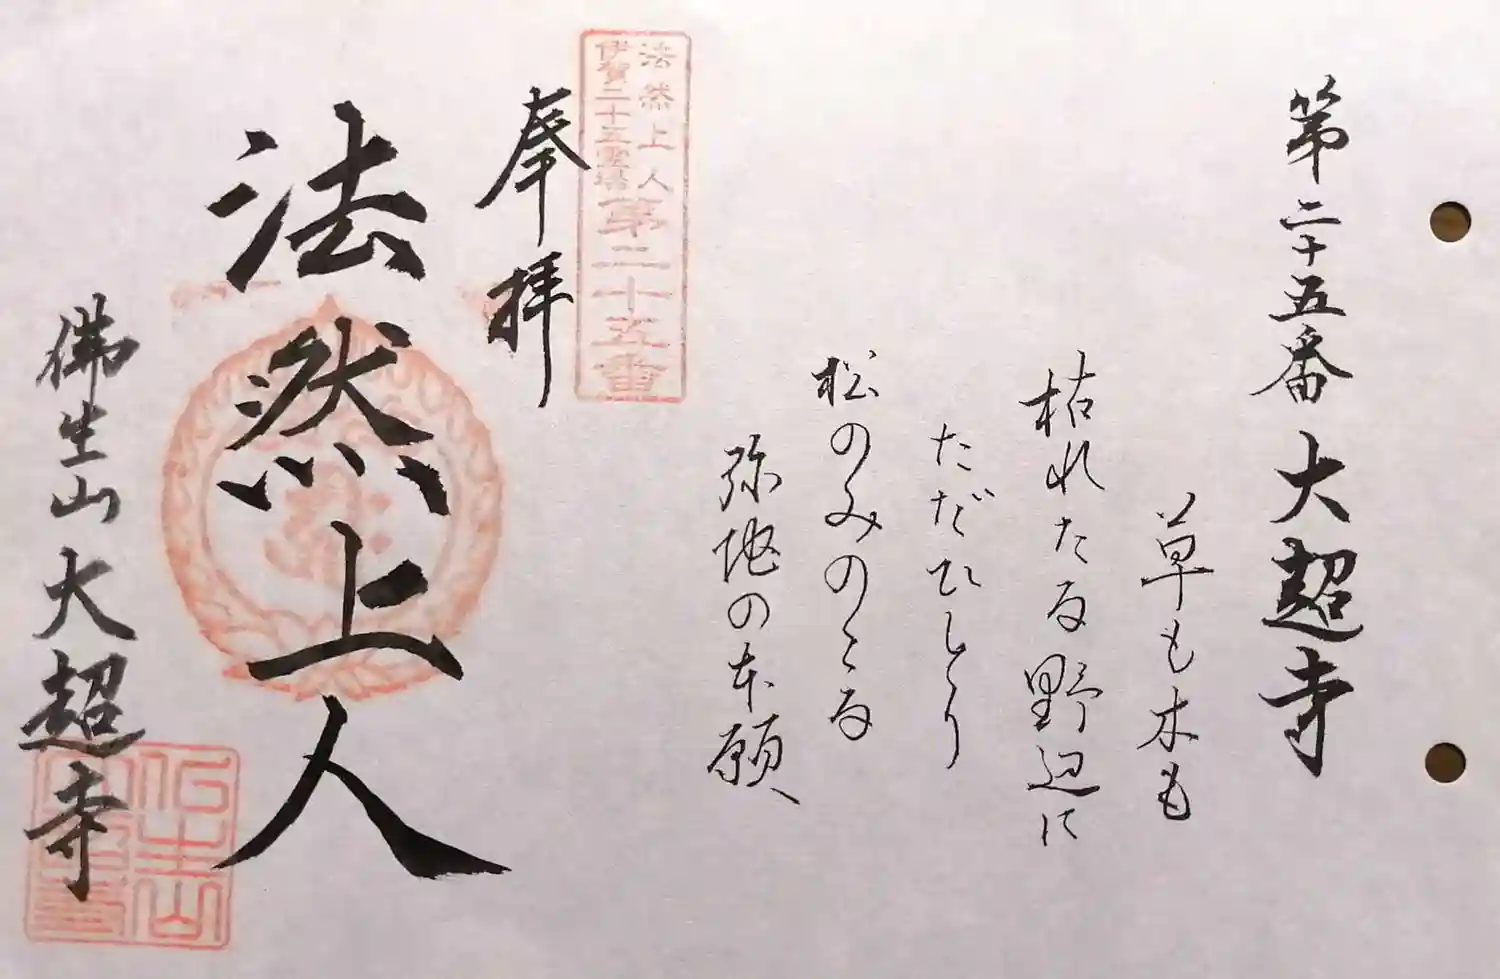 第二十五番 大超寺
草も木も
枯れたる野辺に
ただひとり
松のみのこる
弥地の本願
法然上人
伊賀二十五霊場
第二十五番
奉拝
法然上人
佛生山 大超寺